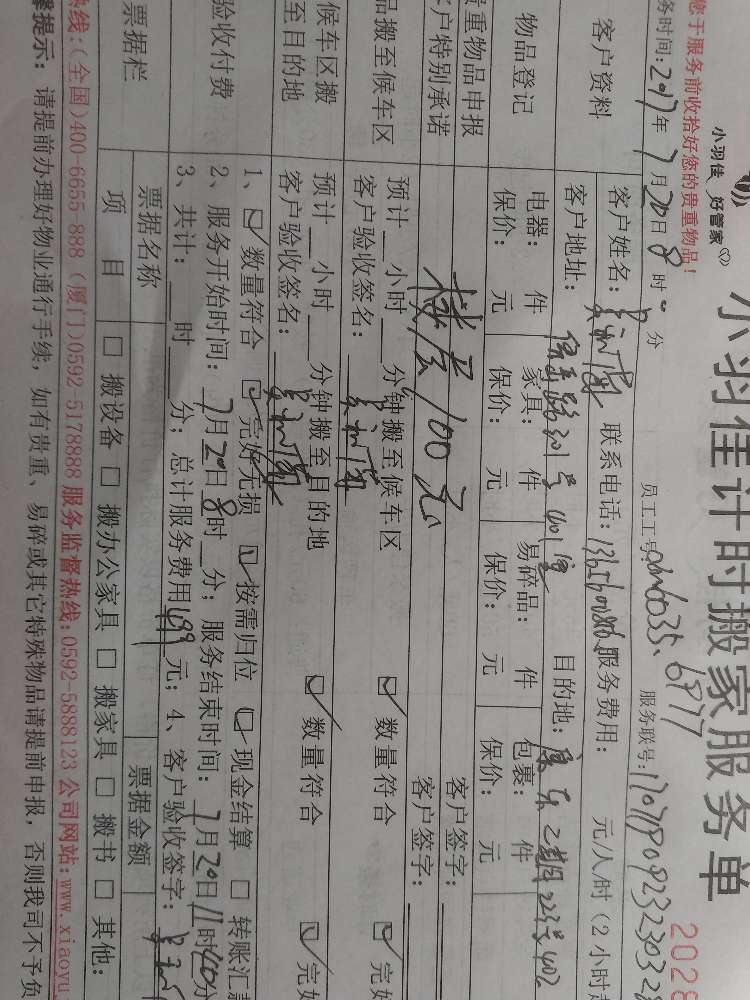 小羽佳计时搬家服务单
小羽佳 好管家
您于服务前收拾好您的贵重物品！
2028
员工工号: 6977
服务联号:
务时间: 2017年7月20日8时 分
客户资料
客户姓名:
联系电话:
服务费用: 元/人/时 (2小时
客户地址:
目的地:
物品登记
电器: 件 家具: 件 易碎品: 件 包裹: 件
保价: 元 保价: 元 保价: 元 保价: 元
贵重物品申报
客户签字:
客户特别承诺
楼层100元
客户签字:
品搬至候车区
预计 小时 分钟搬至候车区 ☑ 数量符合 ☑ 完好
客户验收签名:
候车区搬
至目的地
预计 小时 分钟搬至目的地 ☑ 数量符合 ☑ 完好
客户验收签名:
验收付费
1、☑ 数量符合 ☑ 完好无损 ☑ 按需归位 ☑ 现金结算 □ 转账汇款
2、服务开始时间: 7月20日8时 分; 服务结束时间: 7月20日11时40分
3、共计: 时 分; 总计服务费用 元; 4、客户验收签字:
票据栏
票据名称 票据金额
项目 □ 搬设备 □ 搬办公家具 □ 搬家具 □ 搬书 □ 其他:
热线: (全国)400-6655-888 (厦门)0592-5178888 服务监督热线: 0592-5888123 公司网站: www.xiaoyu
提示: 请提前办理好物业通行手续, 如有贵重、易碎或其它特殊物品请提前申报, 否则我司不予负